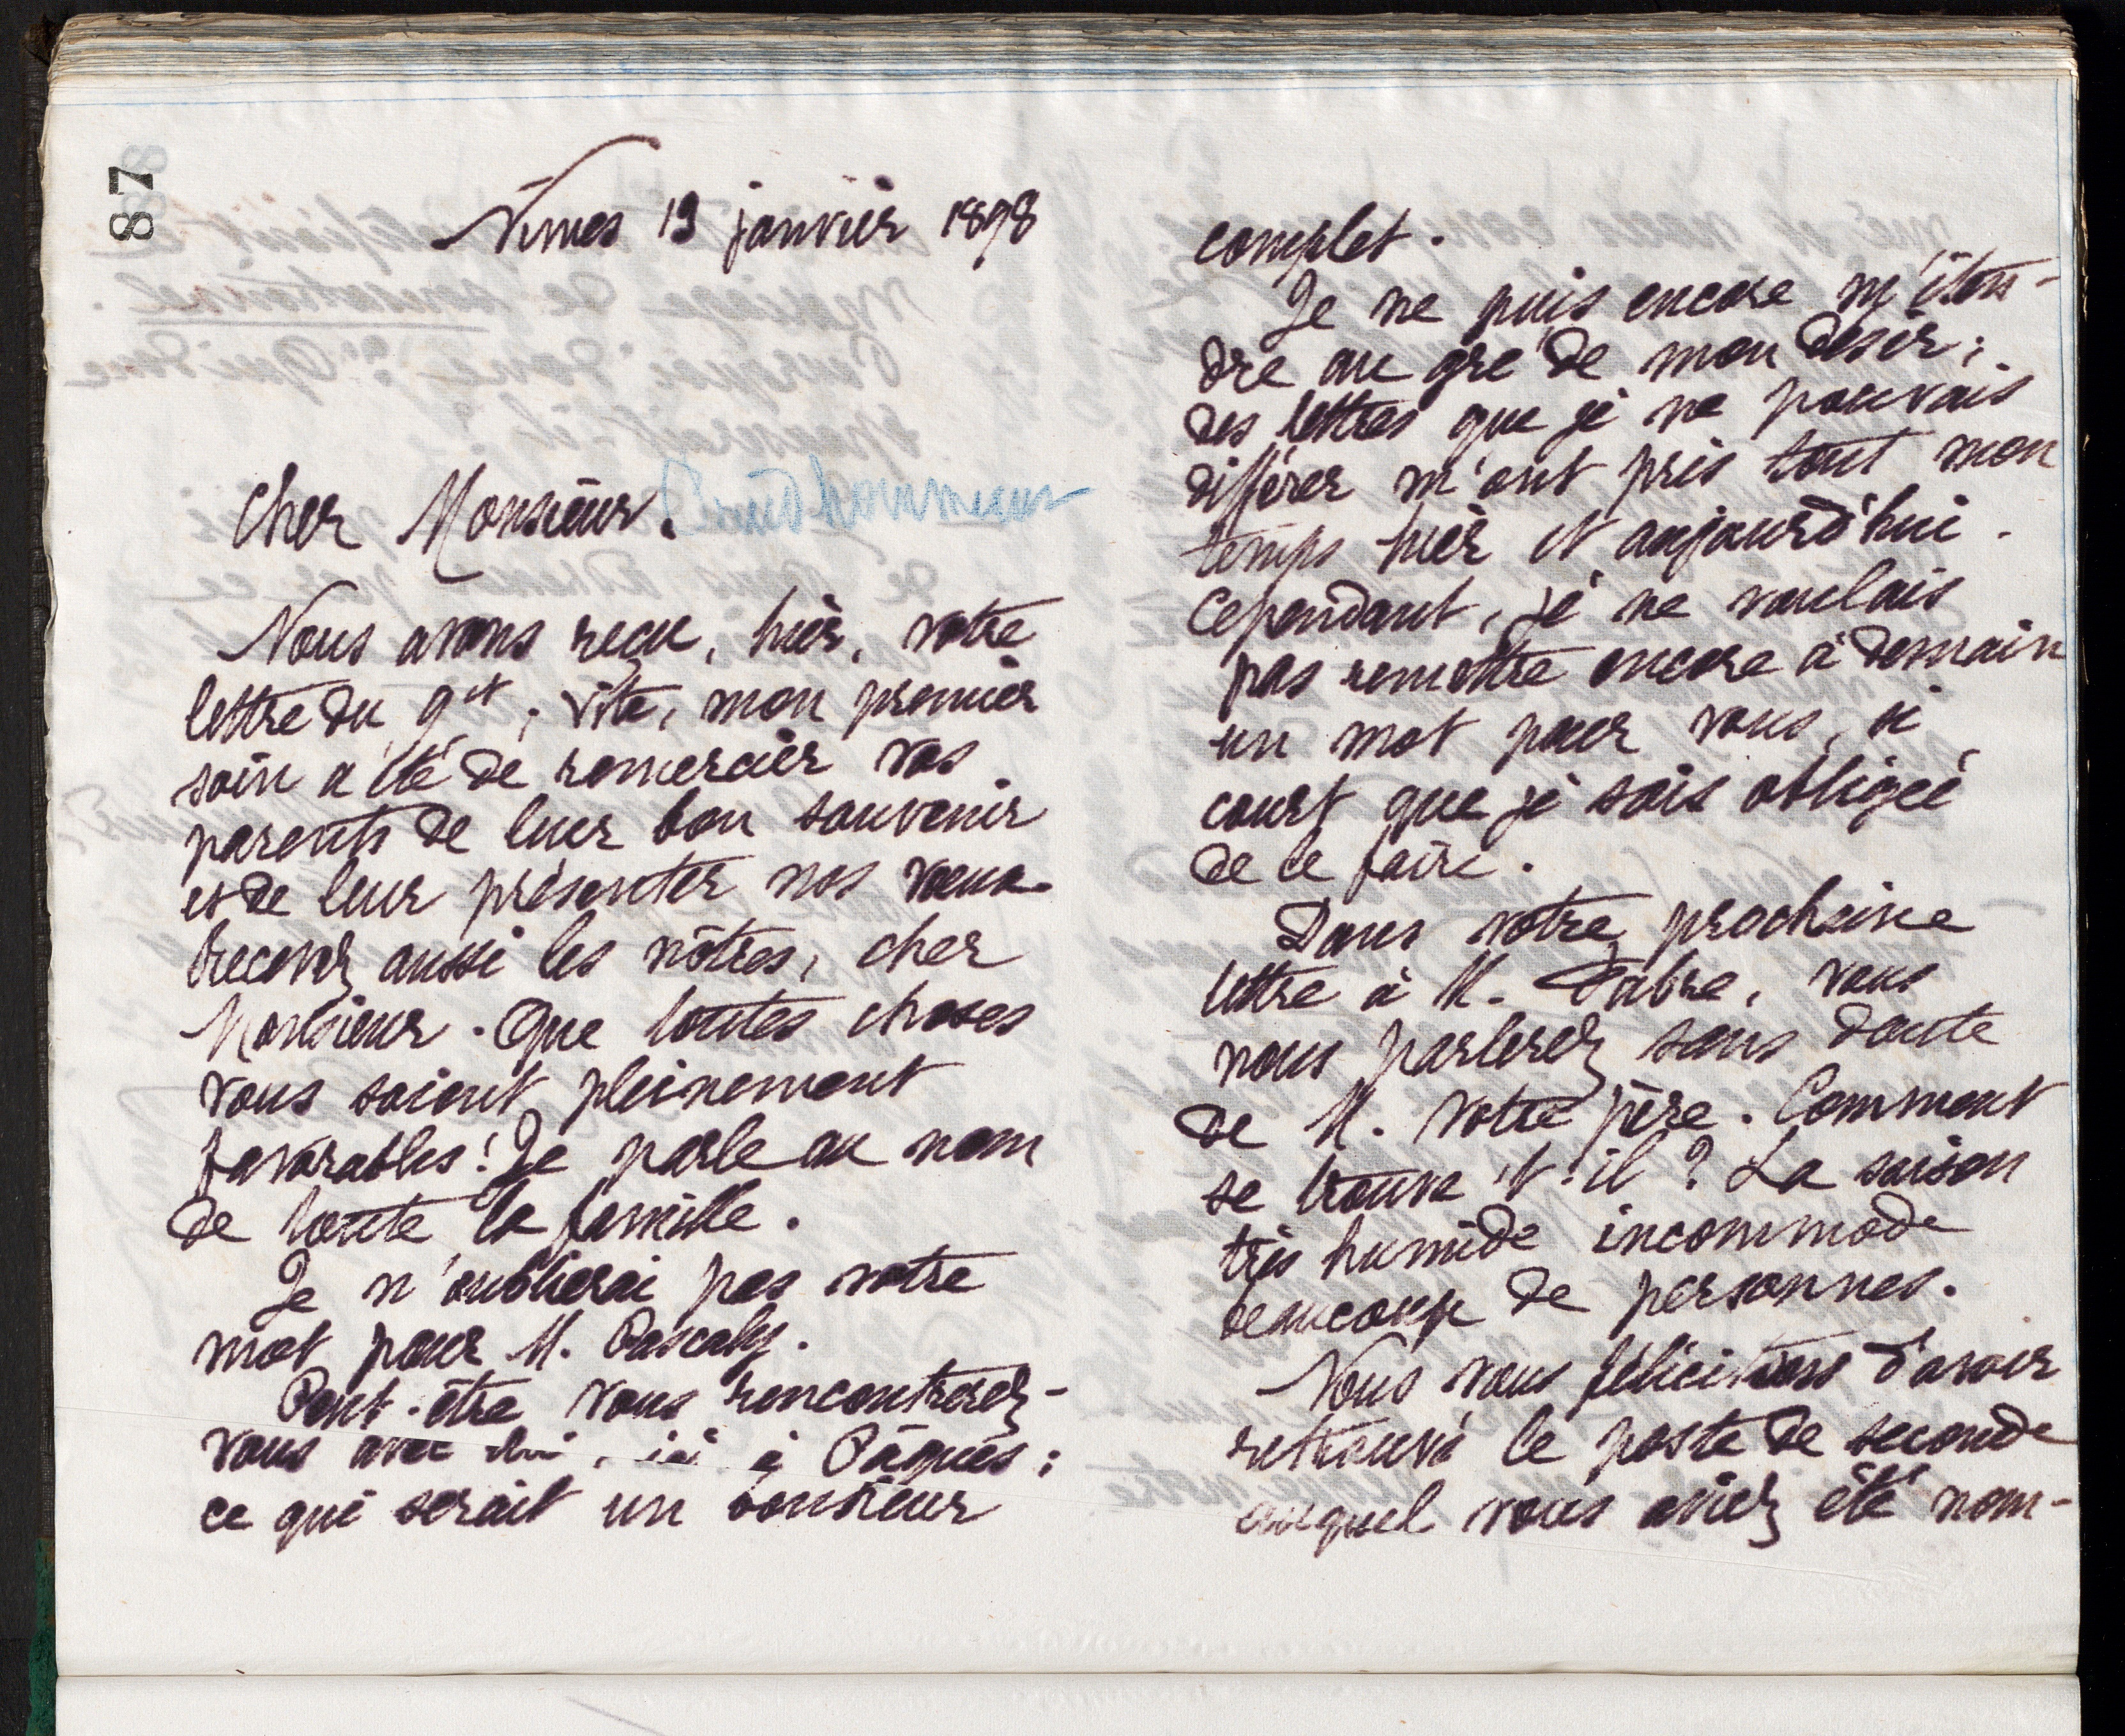 87
Nîmes 13 janvier 1898
Cher Monsieur. Prudhommeaux
Nous avons reçu, hier, votre
lettre du 9 ct ; vite, mon premier
soin a été de remercier vos
parents de leur bon souvenir
et de leur présenter nos vœux.
Recevez aussi les nôtres, cher
Monsieur. Que toutes choses
vous soient pleinement
favorables! Je parle au nom
de toute la famille.
Je n'oublierai pas votre
mot pour M. Pascaly.
Peut-être vous rencontrerez-
vous avec lui, ici à Pâques;
ce qui serait un bonheur
complet.
Je ne puis encore m'éten-
dre au gré de mon désir;
des lettres que je ne pouvais
différer m'ont pris tout mon
temps hier et aujourd'hui.
Cependant, je ne voulais
pas remettre encore à demain
un mot pour vous, si
court que je sois obligée
de le faire.
Dans votre prochaine
lettre à M. Fabre, vous
nous parlerez sans doute
de M. votre père. Comment
se trouve-t-il? La saison
très humide incommode
beaucoup de personnes.
Nous vous félicitons d'avoir
retrouvé le poste de seconde
auquel vous aviez été nom-